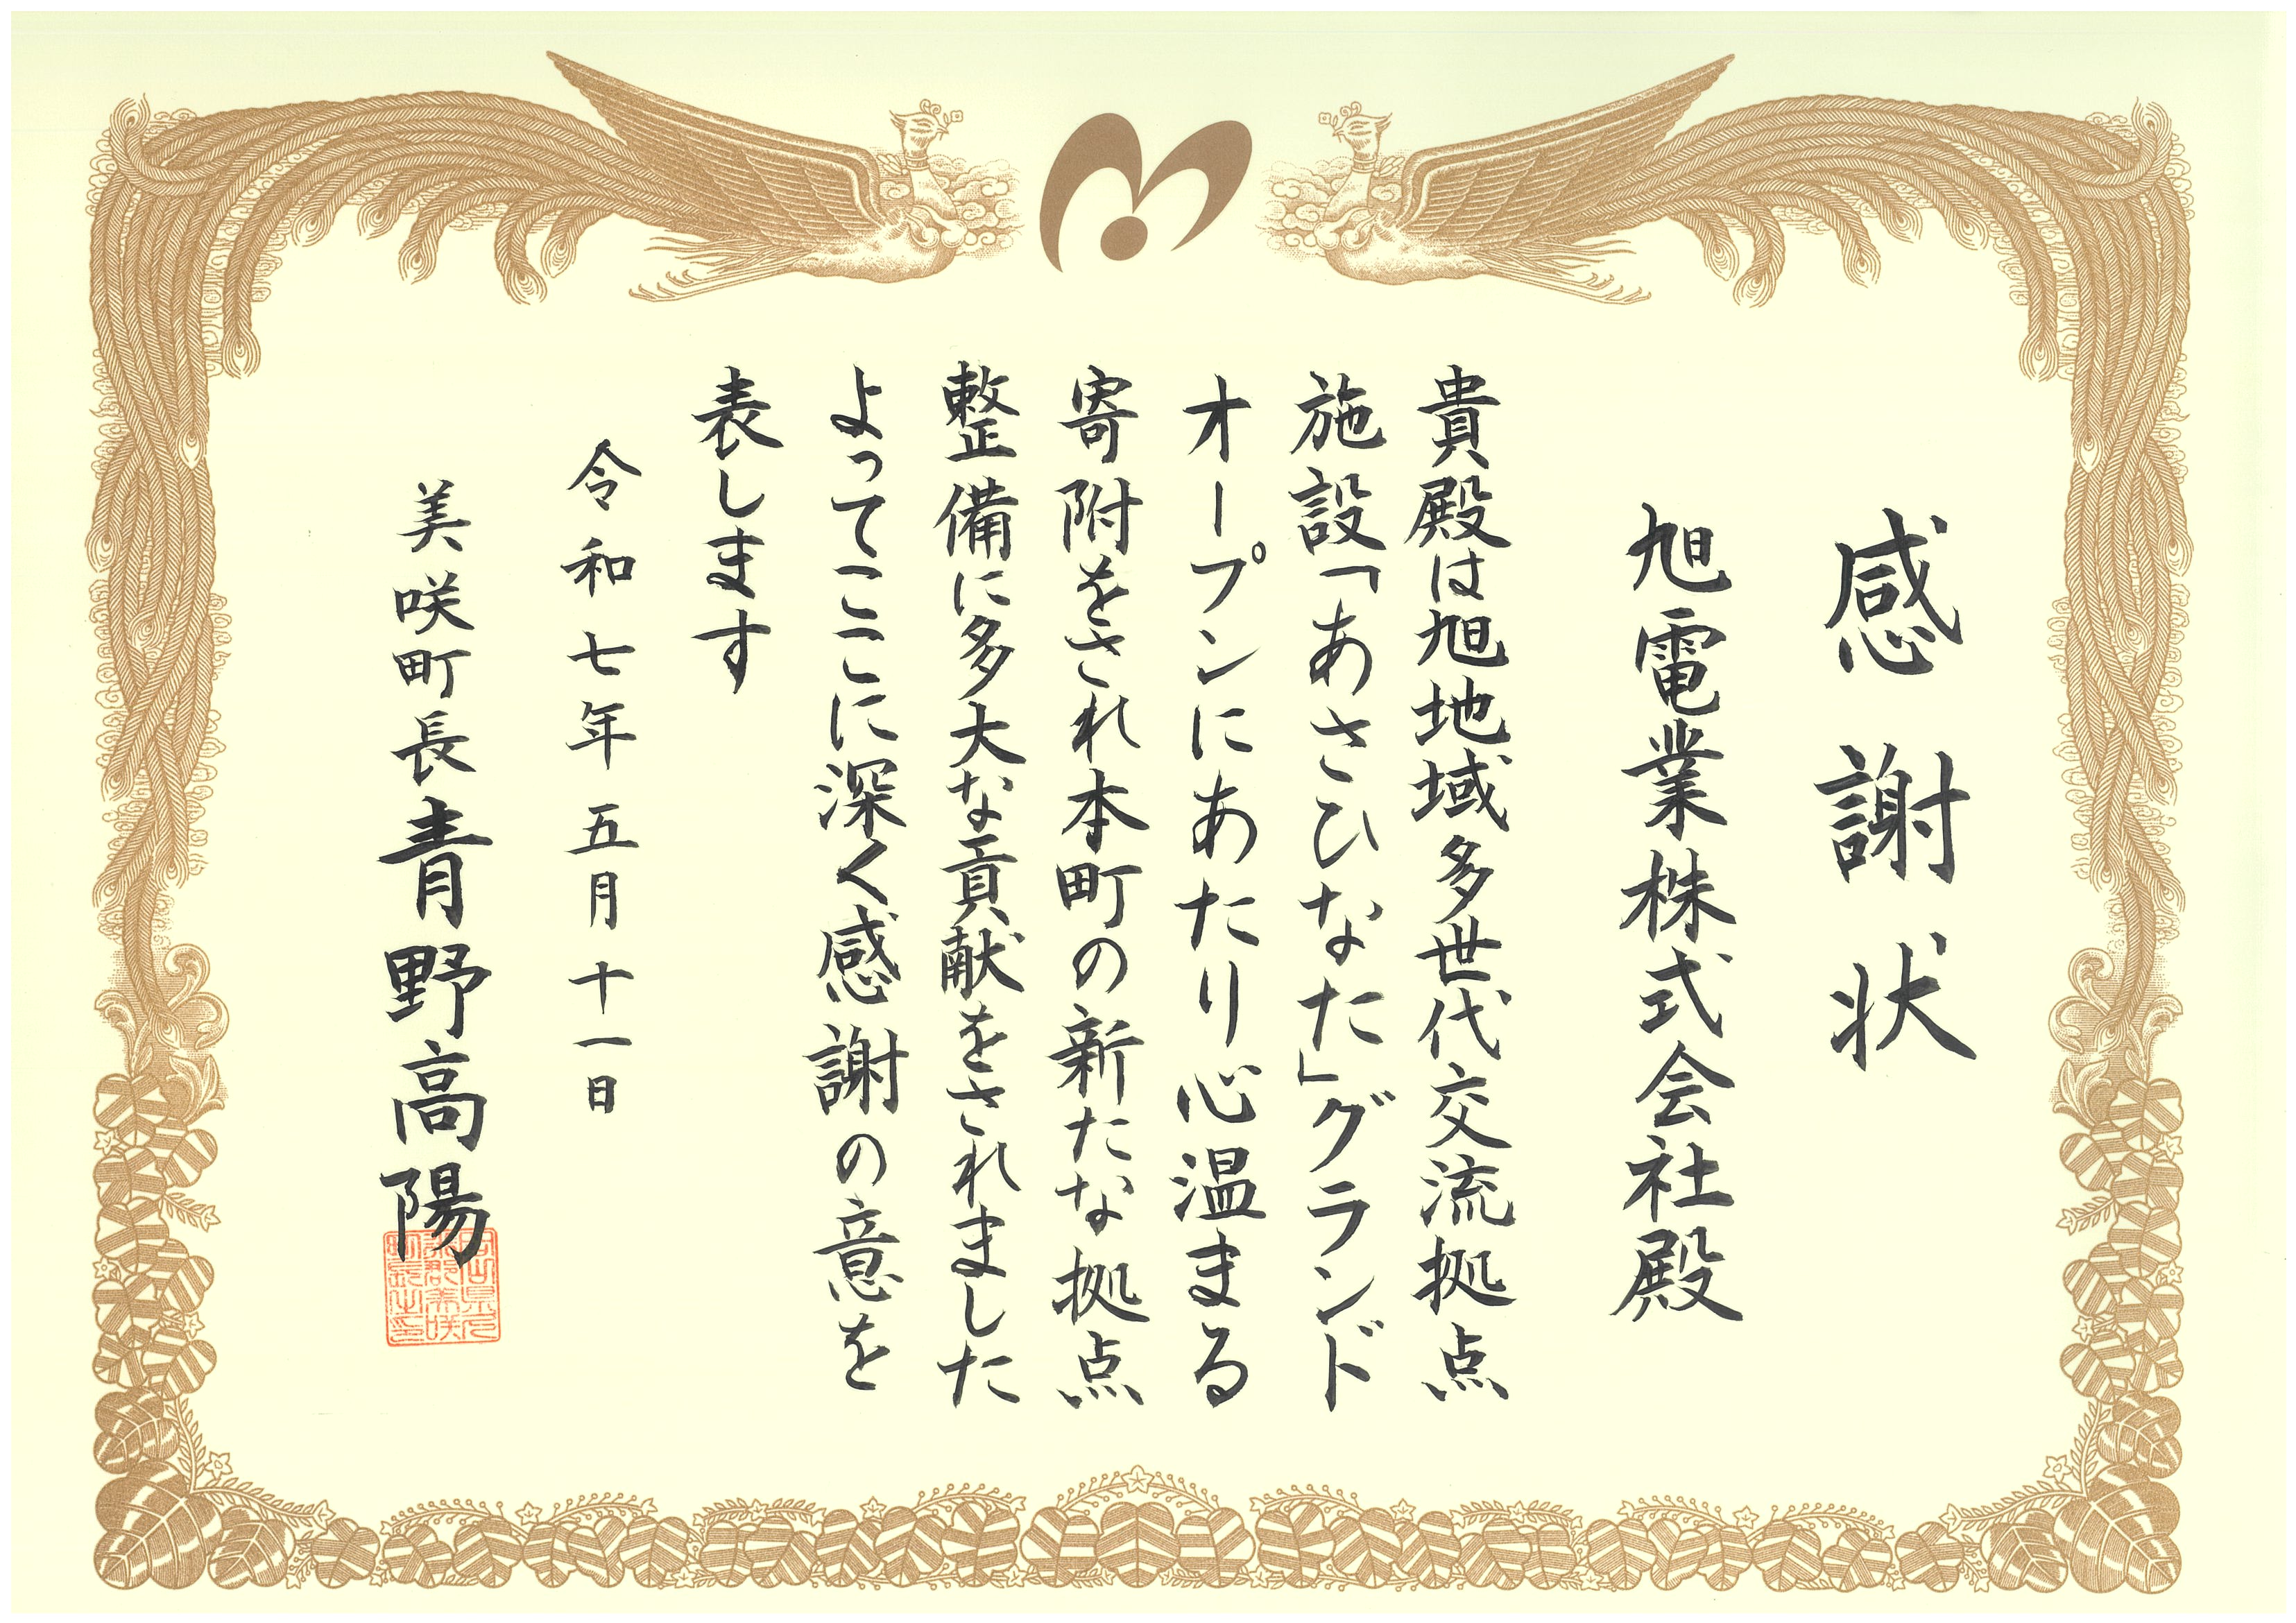 感謝状
旭電業株式会社殿
貴殿は旭地域多世代交流拠点
施設「あさひなた」グランド
オープンにあたり心温まる
寄附をされ本町の新たな拠点
整備に多大な貢献をされました
よってここに深く感謝の意を
表します
令和七年五月十一日
美咲町長青野高陽